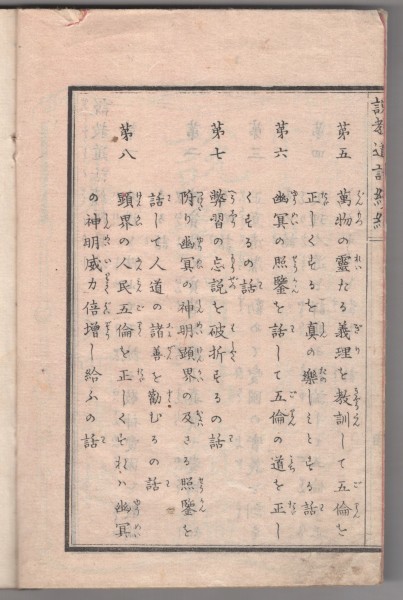 説教道話続編
第五 萬物の靈たる義理を教訓して五倫を
正しくするを真の樂しみとする話
第六 幽冥の照鑒を話して五倫の道を正し
くするの話
第七 弊習の忘説を破折するの話
附り幽冥の神明顕界の及さる照鑒を
話して人道の諸善を勧むるの話
第八 顕界の人民五倫を正しくすれハ幽冥
の神明威力倍増し給ふの話